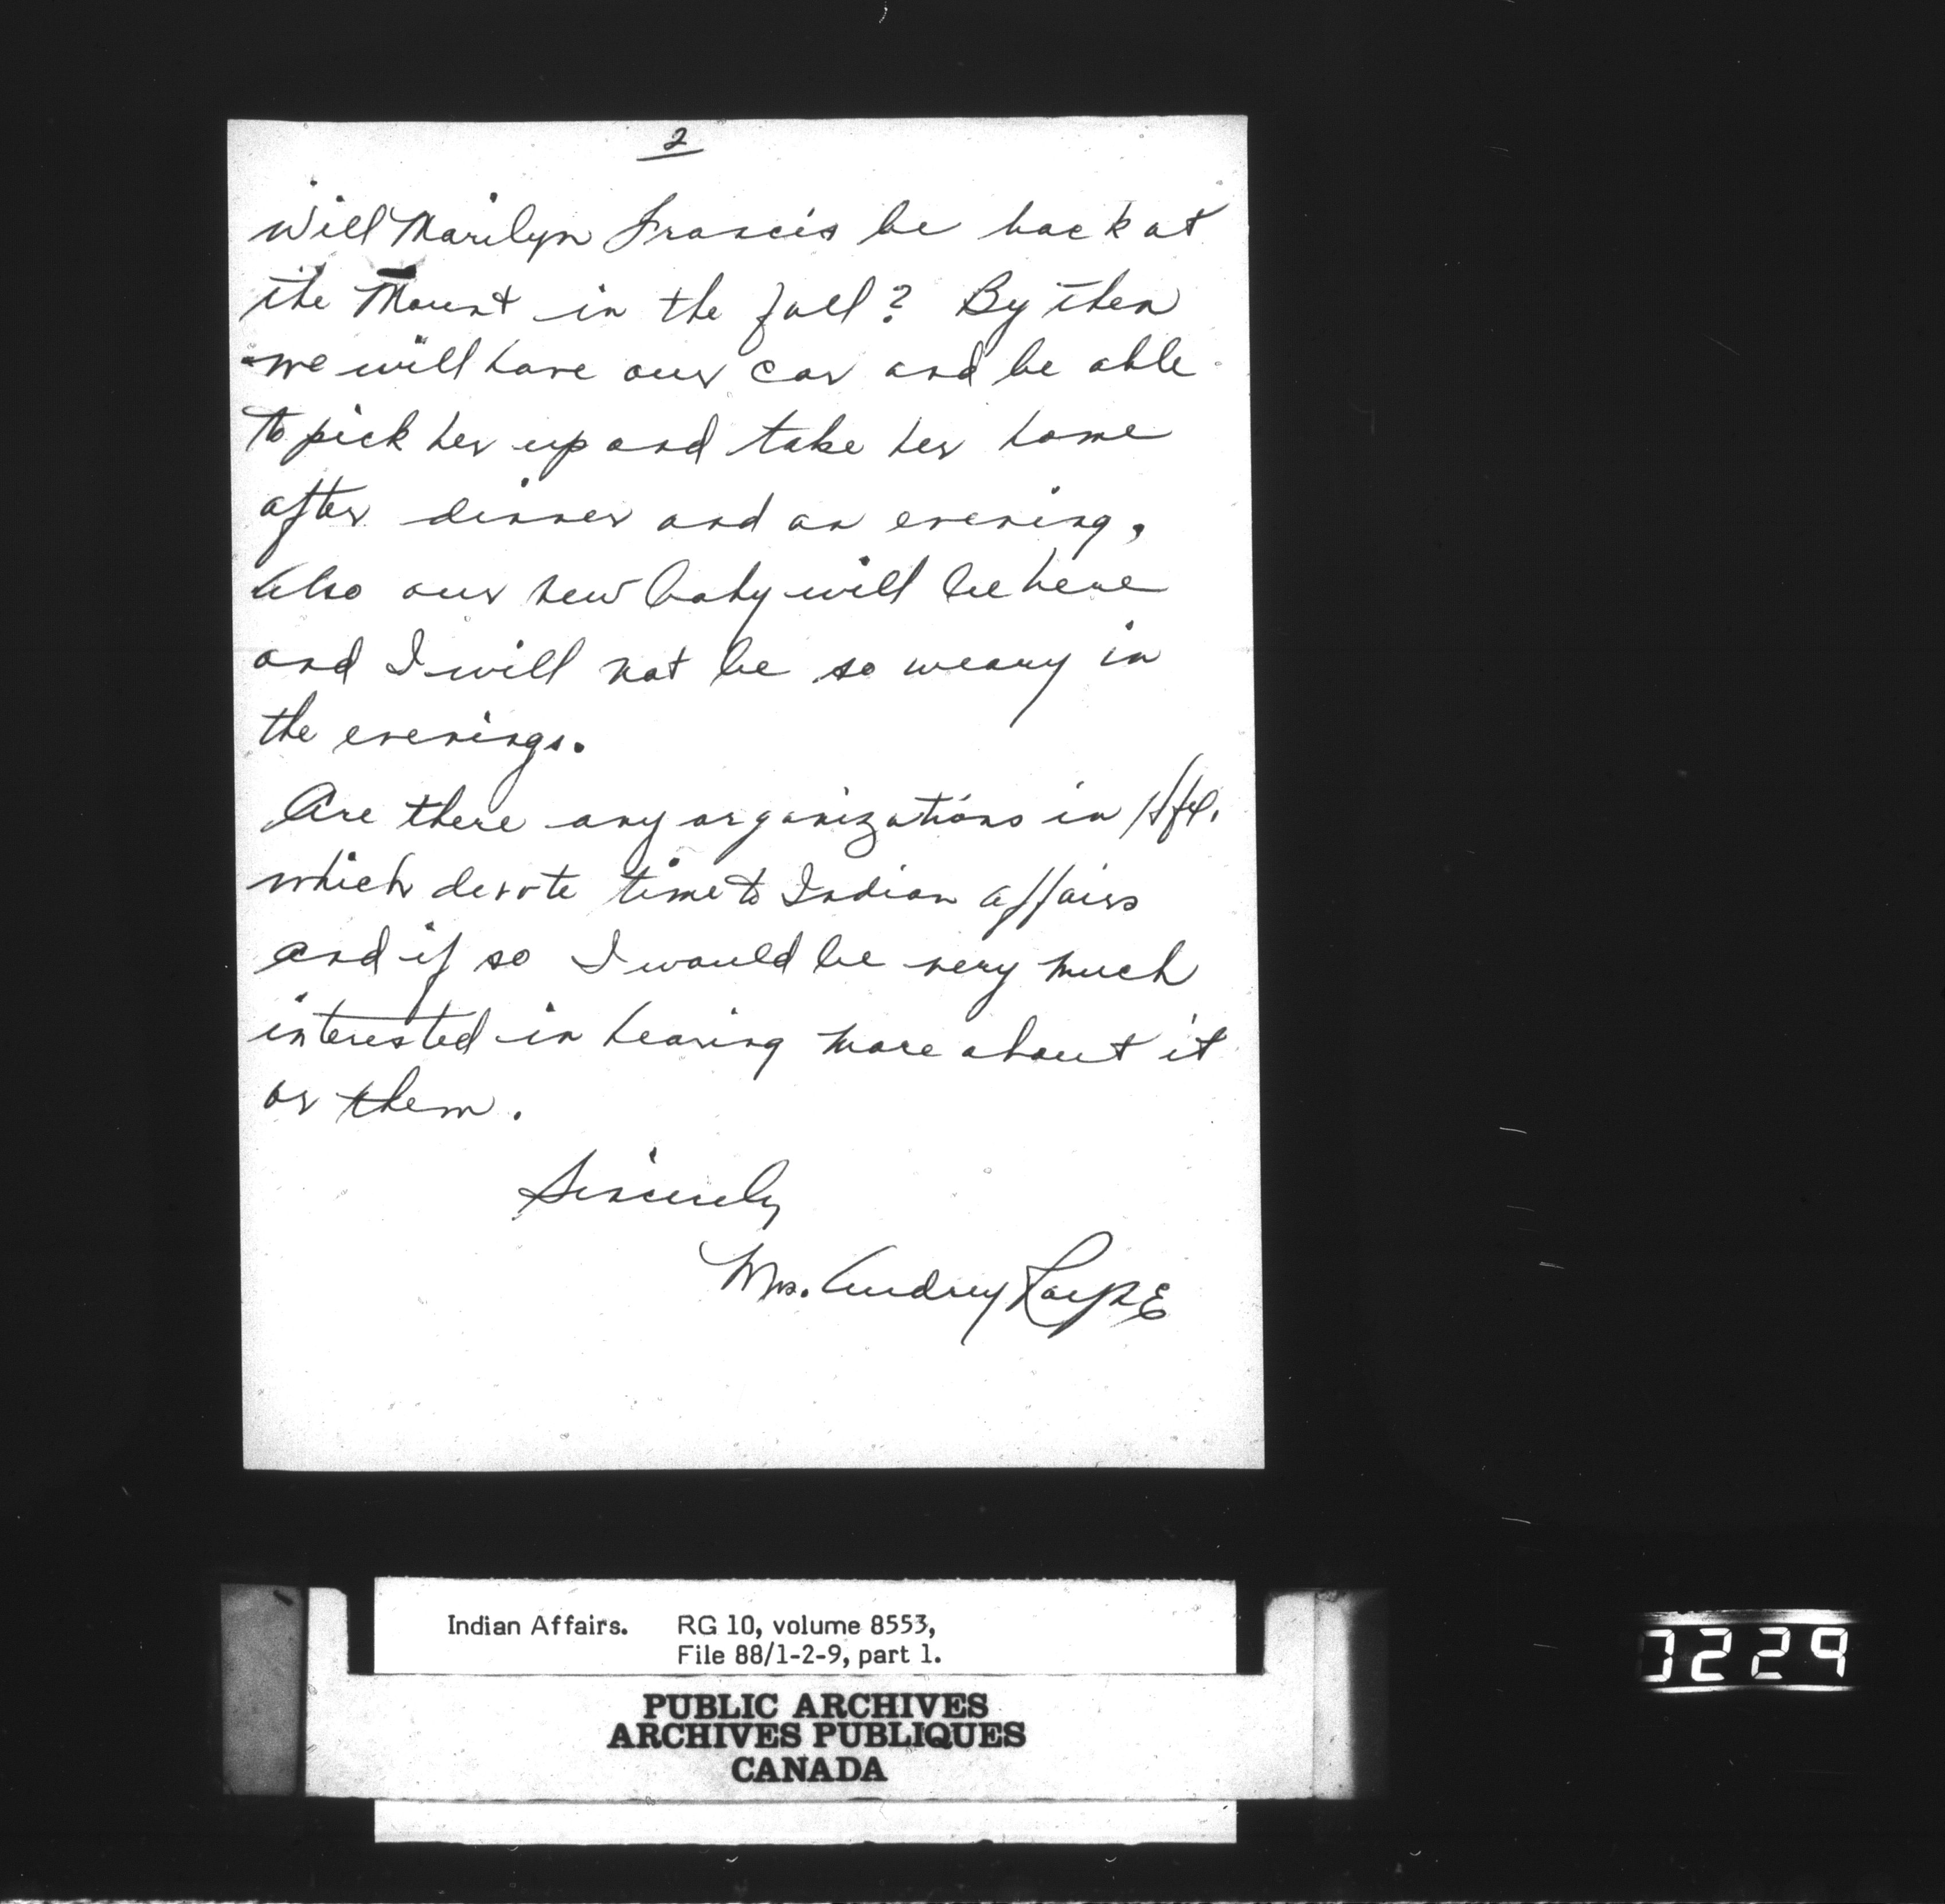 2
Will Marilyn Francis be back at
the Mount in the fall? By then
we will have our car and be able
to pick her up and take her home
after dinner and an evening,
Also our new baby will be here
and I will not be so weary in
the evenings.
Are there any organizations in Hfx.
which devote time to Indian affairs
and if so I would be very much
interested in hearing more about it
or them.
Sincerely
Mrs. Audrey
Indian Affairs. RG 10, volume 8553,
File 88/1-2-9, part 1.
PUBLIC ARCHIVES
ARCHIVES PUBLIQUES
CANADA
0229